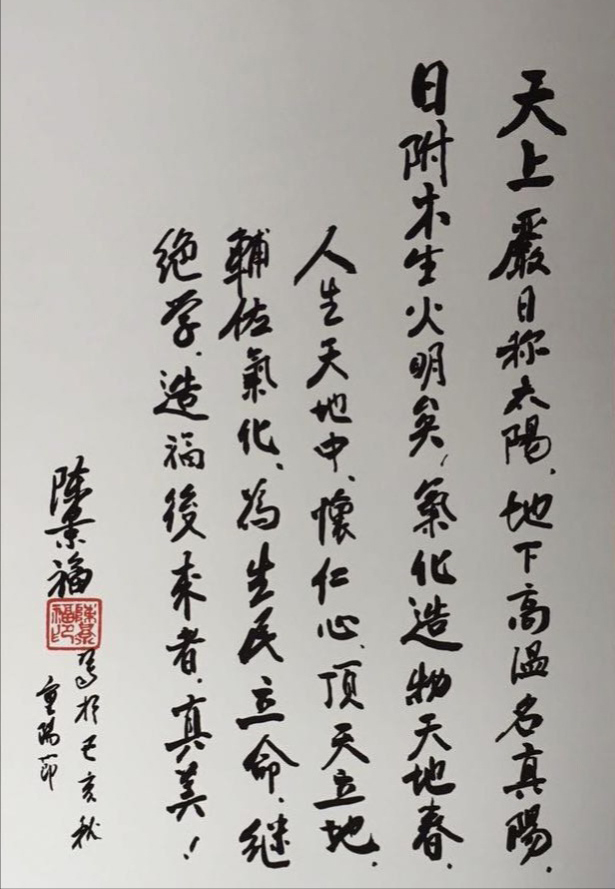 天上嚴日称太陽、地下高温名真陽.
日附木生火明矣,氣化造物天地春.
人生天地中、懷仁心、頂天立地.
輔佐氣化、為生民立命、继
绝学、造福後来者,真美!
陈景福
陳景福印
写於己亥秋
重陽節